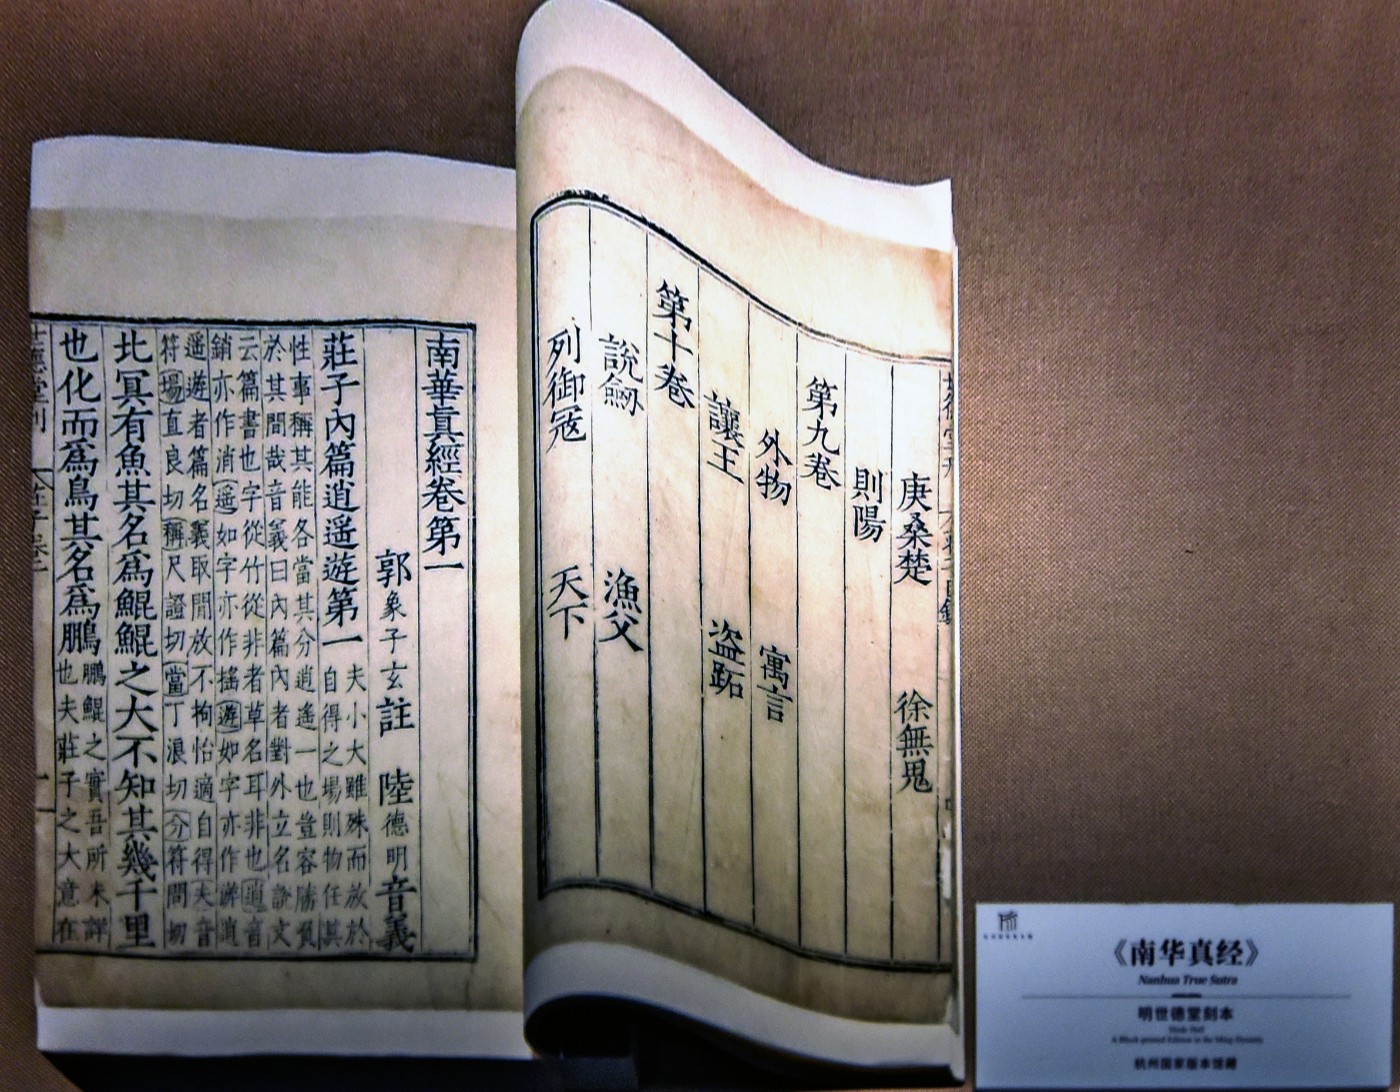 庚桑楚 徐無鬼
則陽
第九卷
外物 寓言
讓王 盜跖
第十卷
說劒 漁父
列御冦 天下
南華眞經卷第一
郭象子玄註 陸德明音義
莊子內篇逍遙遊第一
夫小大雖殊而放於
自得之場則物任其
性事稱其能各當其分逍遙一也豈容勝負
於其間哉音義曰內篇內者對外立名說文
云篇書也字從竹從非者草名耳非也逍音
銷亦作消遙如字亦作搖遊如字亦作游逍
遙遊者篇名義取閒放不拘怡適自得夫音
符場直良切稱尺證切當丁浪切分符問切
北冥有魚其名爲鯤鯤之大不知其幾千里
也化而爲鳥其名爲鵬
鵬鯤之實吾所未詳
也夫莊子之大意在
世德堂刊
《南华真经》
Nanhua True Sutra
明世德堂刻本
Shide Hall
A Block-printed Edition in the Ming Dynasty
杭州国家版本馆藏